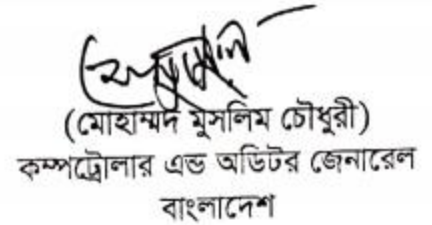 (মোহাম্মদ মুসলিম চৌধুরী)
কম্পট্রোলার এন্ড অডিটর জেনারেল
বাংলাদেশ